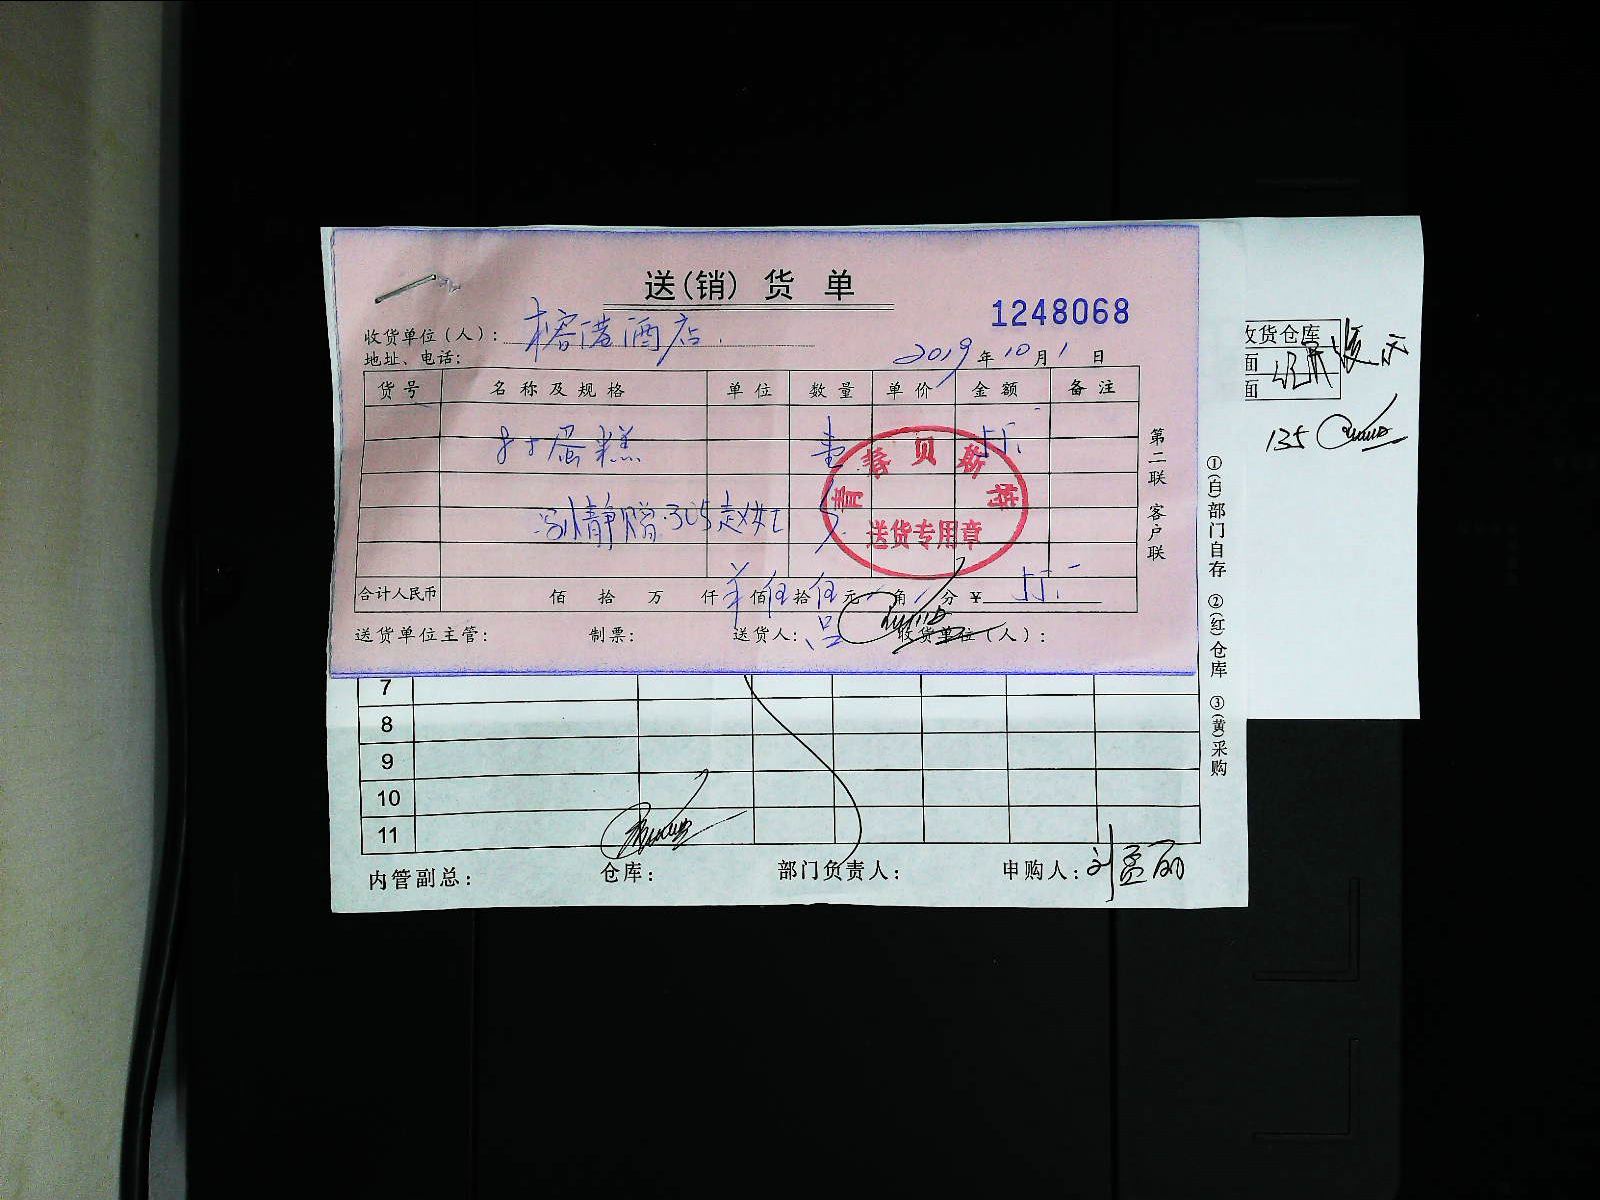 送(销)货单
1248068
收货单位(人): 榕港酒店
地址、电话: 2019年10月1日
货号 名称及规格 单位 数量 单价 金额 备注
8寸蛋糕 壹 55.-
冯静赠·305赵女士
青春贝斯特
送货专用章
合计人民币 佰 拾 万 仟 佰 伍 拾 伍 元 角 分 ¥ 55.-
送货单位主管: 制票: 送货人: 收货单位(人):
第二联 客户联
7
8
9
10
11
内管副总: 仓库: 部门负责人: 申购人: 刘孟丽
①(白)部门自存 ②(红)仓库 ③(黄)采购
收货仓库
面
面
135